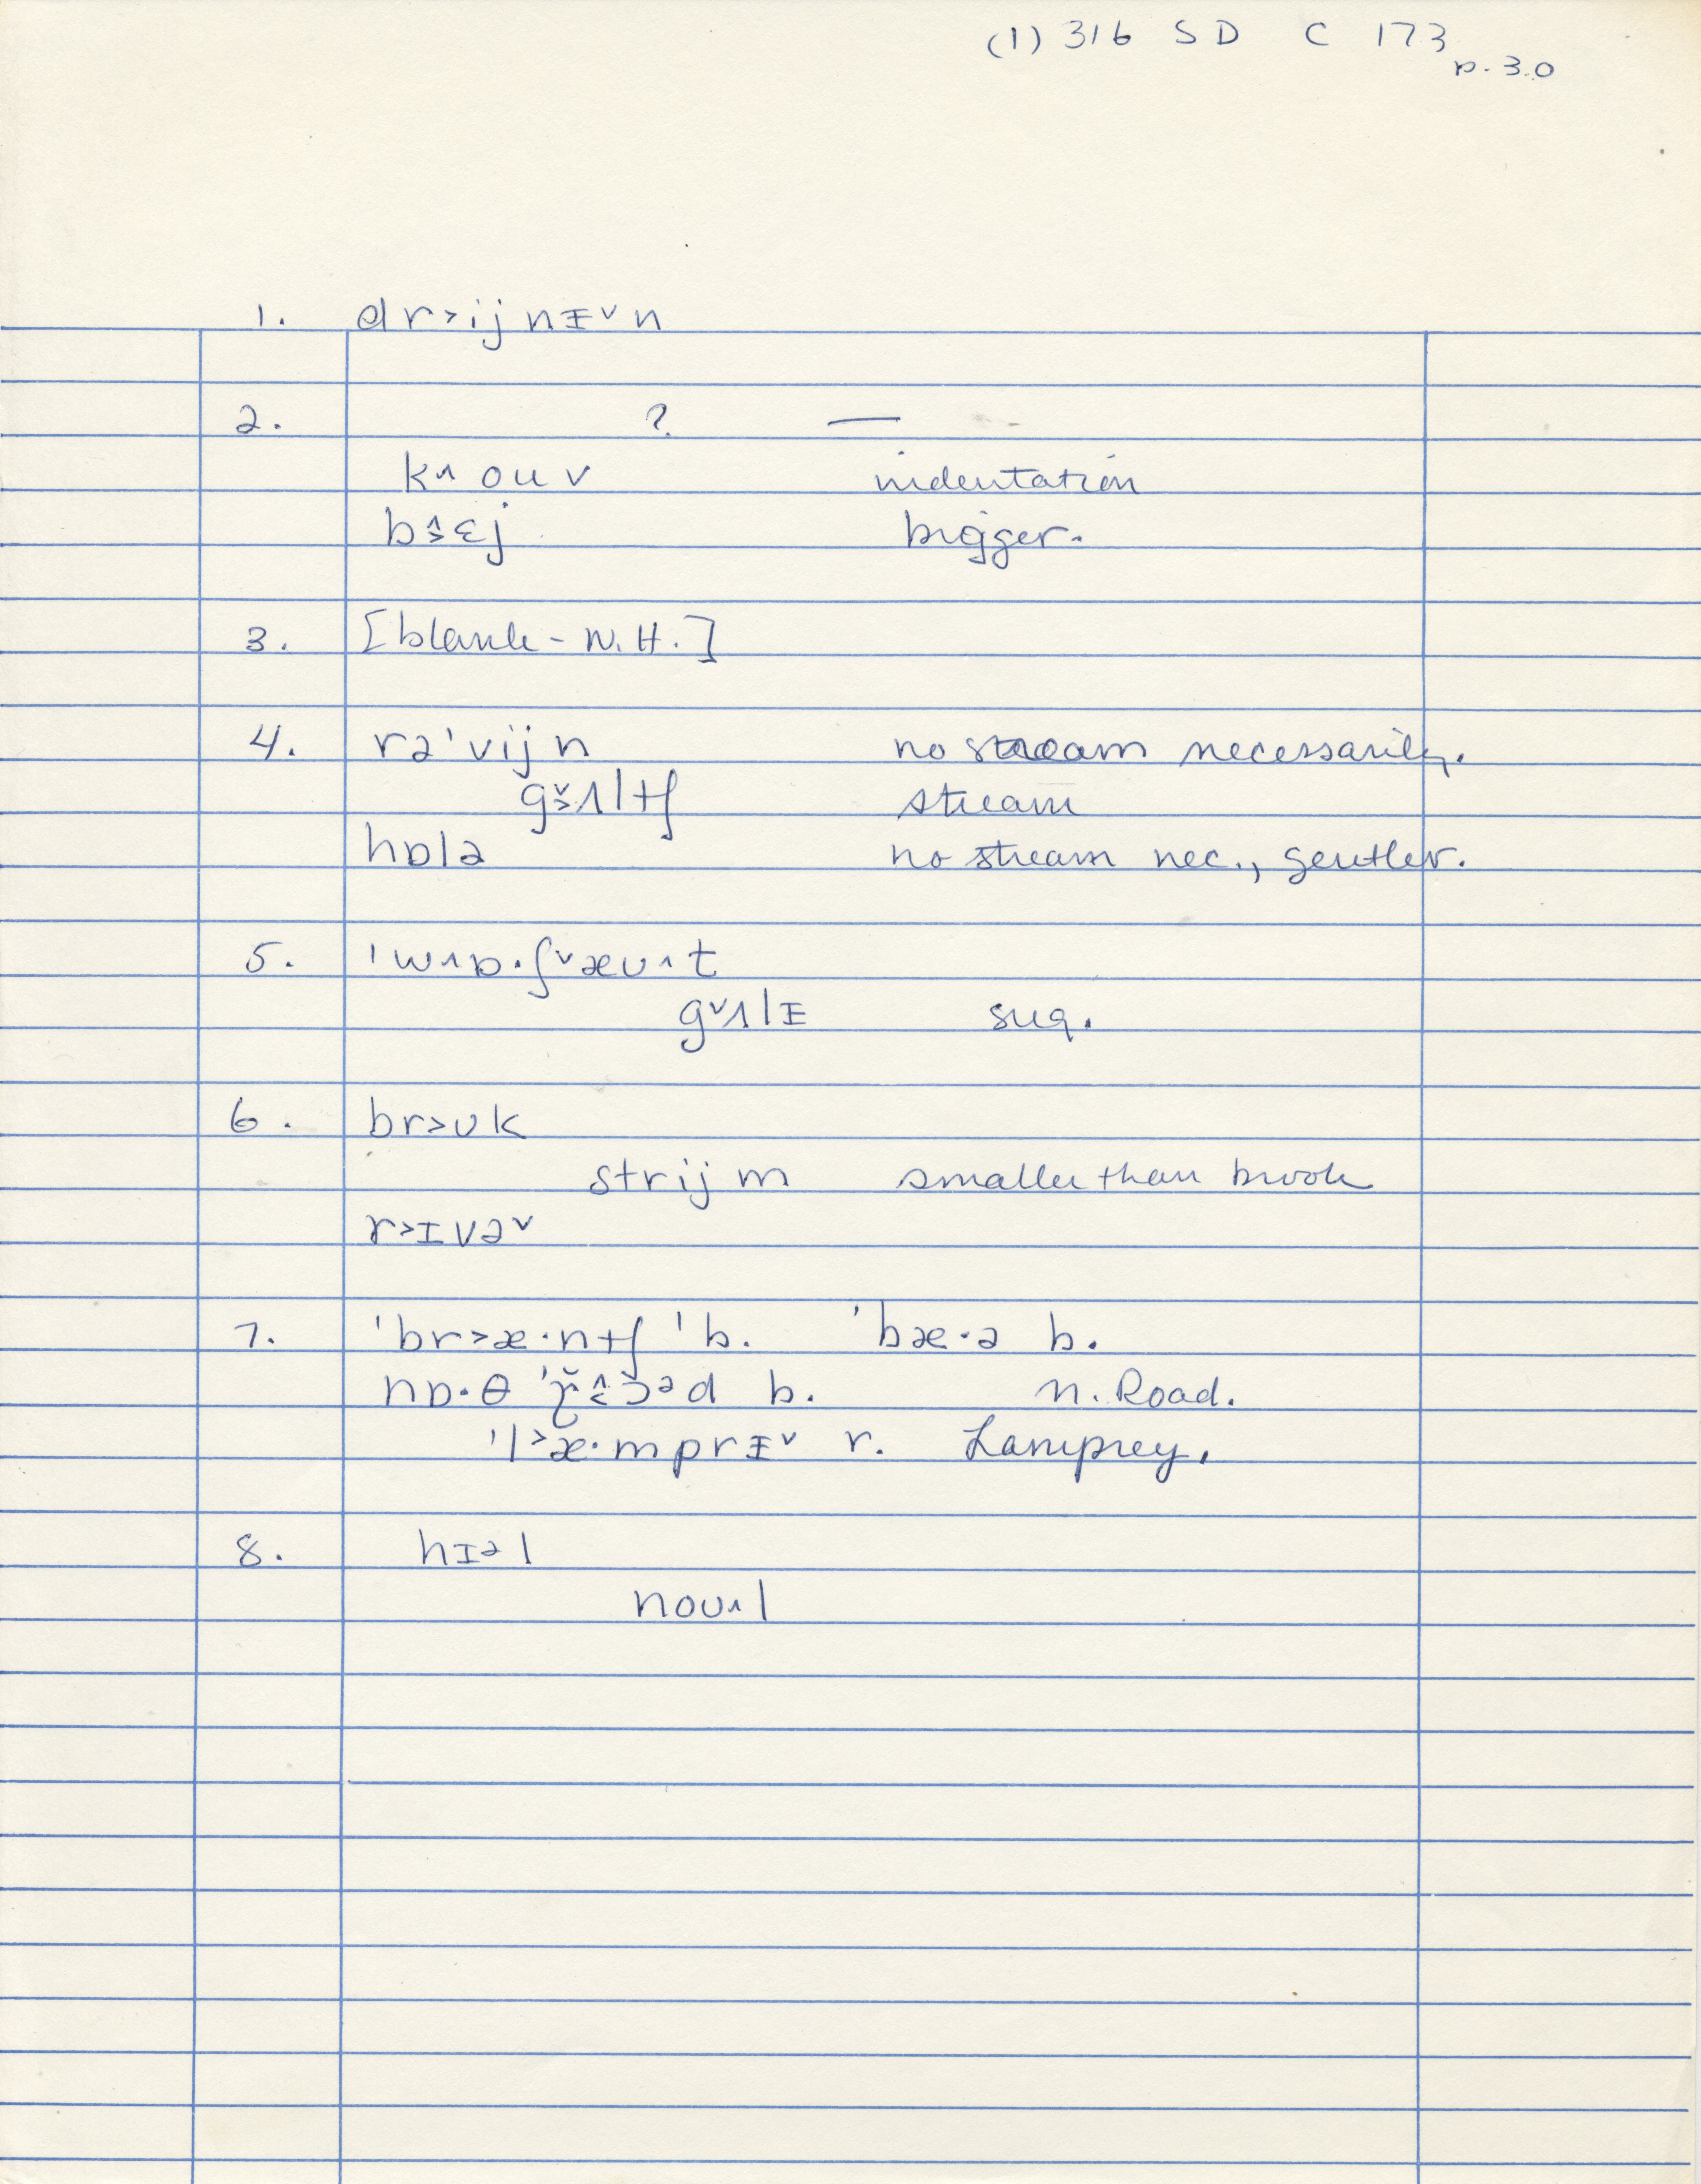 (1) 316 S D C 173
p. 30
1. dr˃ijnɪ˅n
2. ? —
k˄ouv indentation
b˄˃ɛj bigger.
3. [blank - N.H.]
4. rə'vijn no stream necessarily.
g˅˃ʌltʃ stream
hɒlə no stream nec., gentler.
5. 'w˄ɒ·ʃ˅æʊ˄t
g˅ʌlɪ sug.
6. br˃ʊk
strijm smaller than brook
r˃ɪvə˅
7. 'br˃æ·ntʃ 'b. 'bæ·ə b.
nɒ·θ b. n. Road.
'l˃æ·mprɪ˅ r. Lamprey.
8. hɪəl
noʊ˄l